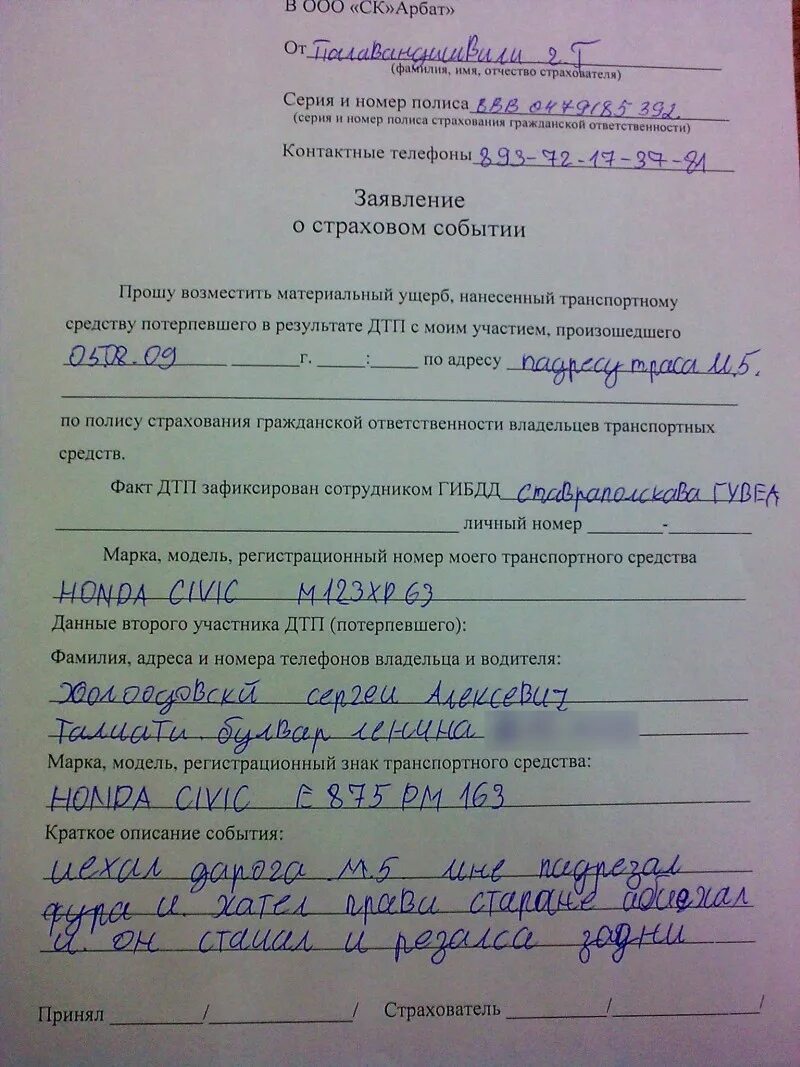 В ООО «СК»Арбат»
От Палавандишвили г. Г
(фамилия, имя, отчество страхователя)
Серия и номер полиса ВВВ 0479185392
(серия и номер полиса страхования гражданской ответственности)
Контактные телефоны 893-72-17-37-81
Заявление
о страховом событии
Прошу возместить материальный ущерб, нанесенный транспортному
средству потерпевшего в результате ДТП с моим участием, произошедшего
05.08.09 ______г. ____:____ по адресу падресу траса М.5.
по полису страхования гражданской ответственности владельцев транспортных
средств.
Факт ДТП зафиксирован сотрудником ГИБДД Ставраполскава ГУВЕД
личный номер ______-______
Марка, модель, регистрационный номер моего транспортного средства
HONDA CIVIC М123ХР 63
Данные второго участника ДТП (потерпевшего):
Фамилия, адреса и номера телефонов владельца и водителя:
сергеи Алексевич
Талиати булвар ленина
Марка, модель, регистрационный знак транспортного средства:
HONDA CIVIC Е 875 РМ 163
Краткое описание события:
иехал дарога М.5 мне падрезал
фура и хател прави старане абиехал
и он стаиал и резалса задни
Принял ________/____________/ Страхователь ________/____________/